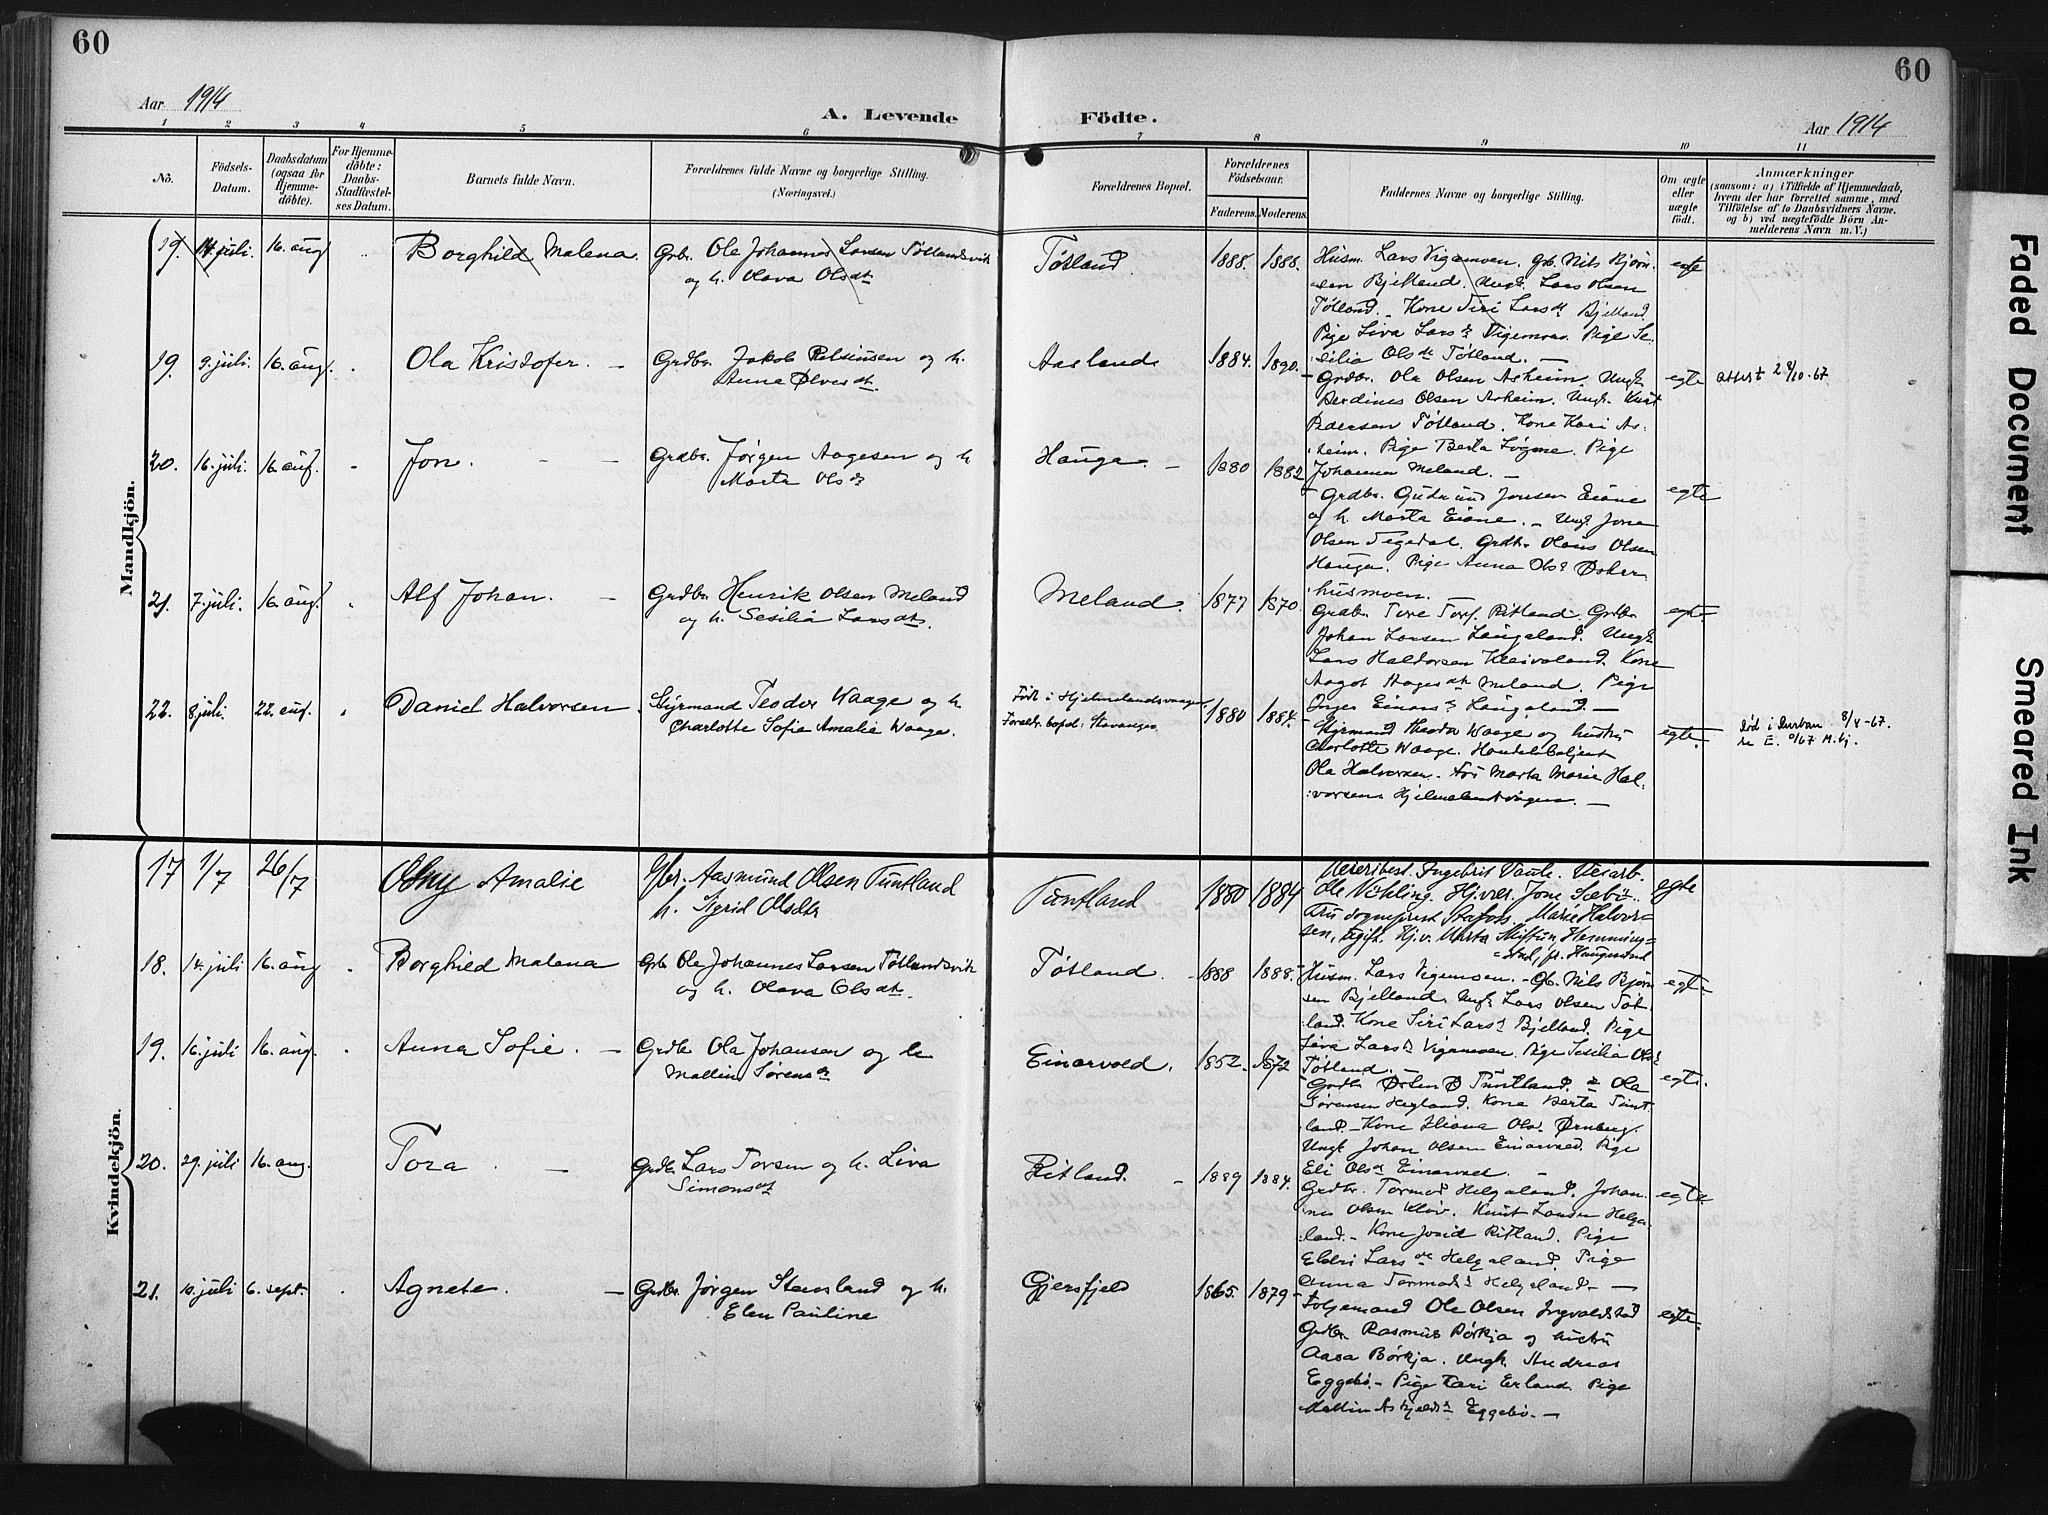 60
60
Aar 1914
A. Levende
Födte.
Aar 1914
1 2 3 4 5 6 7 8 9 10 11
Nô.
Födsels-
Datum.
Daabsdatum
(ogsaa for
Hjemme-
döbte).
For Hjemme-
döbte:
Daabs-
Stadfæstel-
ses Datum.
Barnets fulde Navn.
Forældrenes fulde Navne og borgerlige Stilling.
(Næringsvei.)
Forældrenes Bopæl.
Forældrenes
Födselsaar.
Faderens.
Moderens.
Faddernes Navne og borgerlige Stilling.
Om ægte
eller
uægte
födt.
Anmærkninger
(saasom: a) i Tilfælde af Hjemmedaab,
hvem der har forrettet samme, med
Tilföielse af to Daabsvidners Navne,
og b) ved uægtefödte Börn An-
melderens Navn m. V.)
Mandkjön.
19. 14 juli. 16. aug Borghild Malena. Grbr. Ola Johannes Larsen Tøtlandsvik
og h. Olava Olsdt
Tøtland. 1888. 1888.
Husm. Lars Vigamoen. Gb. Nils Bjørn-
sen Bjelland. Ungk. Lars Olsen
Tøtland. Kone Siri Larsdt Bjelland.
Pige Liva Larsdt Vigemoen. Pige Se-
silia Olsdt Tøtland. —
egte
19. 9. juli. 16. aug. Ola Kristofer. — Grdbr. Jakob og h.
Anna Ølvesdt.
Aasland 1884. 1890.
Grdbr. Ola Olsen Asheim. Ungk.
Berdines Olsen Asheim. Ungk. Knut
Pedersen Tøtland. Kone Kari As-
heim. Pige Berta Løgme. Pige
Johanna Meland. —
egte attest 28/10-67
20. 16. juli. 16. aug. Jon. — — Grdbr. Jørgen Aagesen og h
Marta Olsdt
Hauga. — 1880 1882
Grdbr. Gudmund Jonsen Eiane
og h. Marta Eiane. — Ungk. Jone
Olsen Tegedal. Grdbr. Olaus Olsen
Hauga. Pige Anna Olsdt Øster
husmoen.
egte
21. 7. juli. 16. aug. Alf Johan. — Grdbr. Henrik Olsen Meland
og h. Sesilia Larsdt.
Meland. 1877 1870.
Grdbr. Tore Torf. Ritland. Grdbr.
Johan Larsen Laugaland. Ungk.
Lars Haldorsen Kleivaland. Kone
Aagot Aagesdt Meland. Pige
Inger Einarsdt Laugaland. —
egte.
22. 8. juli. 22. aug. Daniel Halvorsen. Styrmand Teodor Waage og h.
Charlotte Sofie Amalie Waage.
Født i Hjelmelandsvaagen
Foreldr. bopel: Stavanger
1880 1884.
Styrmand Theodor Waage og hustru
Charlotte Waage. Handelsbetjent
Ola Halvorsen. Frü Marta Marie Hal-
vorsen Hjelmelandsvågen. —
egte. Død i Durban 8/4-67.
Kvindekjön.
17 1/7 26/7 Olny Amalie Gbr. Aasmund Olsen Tuntland
h. Sigrid Olsdtr
Tuntland 1880 1884
Ingebrit Vaule. Veiarb.
Ole Nøkling. Hj.ver. Jone Sæbø.
Fru sogneprest Marie Halvor-
sen,
egte
18. 14. juli 16. aug Borghild Malena Grb Ole Johannes Larsen Tøtlandsvik
og h. Olava Olsdt.
Tøtland. 1888 1888.
Husm. Lars Vigemoen. — Gb. Nils Bjørn
sen Bjelland. Ungk. Lars Olsen Tøt-
land. Kone Siri Larsdt Bjelland. Pige
Liva Larsdt Vigamoen. Pige Sesilia Olsdt
Tøtland. —
egte
19. 16. juli 16. aug. Anna Sofie. — Grdb. Ola Johansen og h
Mallin Sørensdt
Einarvold. 1852. 1872
Grdbr. Østen Ø Tuntland. Ola
Sørensen Hegland. Kone Berta Tunt-
land. — Kone Eliana Olsdt Ørnberg.
Ungk. Johan Olsen Einarvold. Pige
Eli Olsdt Einarvold. —
egte.
20. 29. juli 16. aug. Tora. — Grdbr. Lars Torsen og h. Liva
Simonsdt
Ritland. 1889 1884.
Grdbr. Tormod Helgaland. Johan-
nes Olsen Kløv. Knut Larsen Helga-
land. — Kone Josid Ritland. Pige
Eldri Larsdt Helgaland. Pige
Anna Tormodsdt Helgeland. —
egte.
21. 10. juli 6. sept. Agnete. — Grdbr. Jørgen Stensland og h.
Elen Pauline
Gjersfjeld 1865. 1879
Foljemand Ole Olsen Ingvaldstad
Grdbr. Rasmus Børkja og hustru
Aasa Børkja. Ungk. Andreas
Eggebø. — Pige Kari Erland. Pige
Mallin Askjeldsdt Eggebø. —
egte.
Faded Document
Smeared Ink